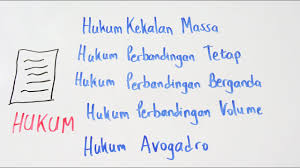 Hukum Kekalan Massa
Hukum Perbandingan Tetap
Hukum Perbandingan Berganda
Hukum Perbandingan Volume
HUKUM
Hukum Avogadro